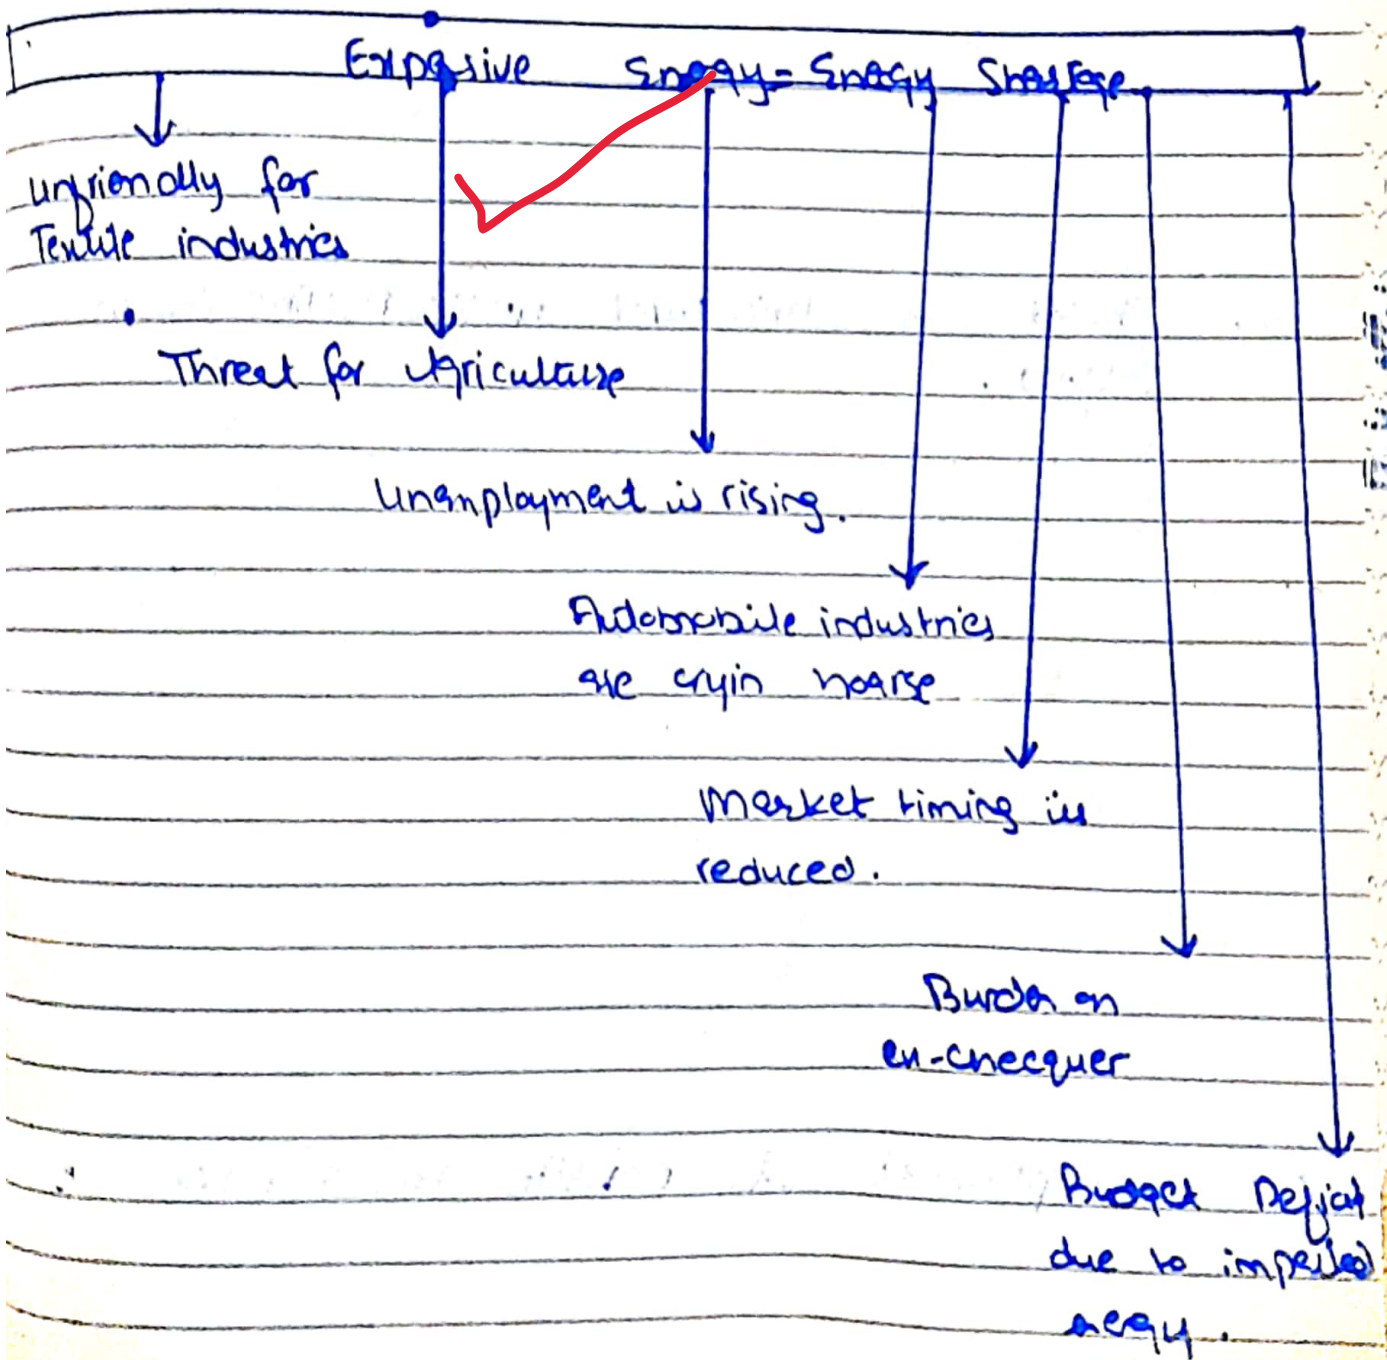 Expesive Enegy = Enegy Shortage
unfriendly for
Textile industries
Threat for Agriculture
Unemployment is rising.
Automobile industries
are cryin hoarse
Market timing is
reduced.
Burden on
ex-checquer
Budget Deficit
due to